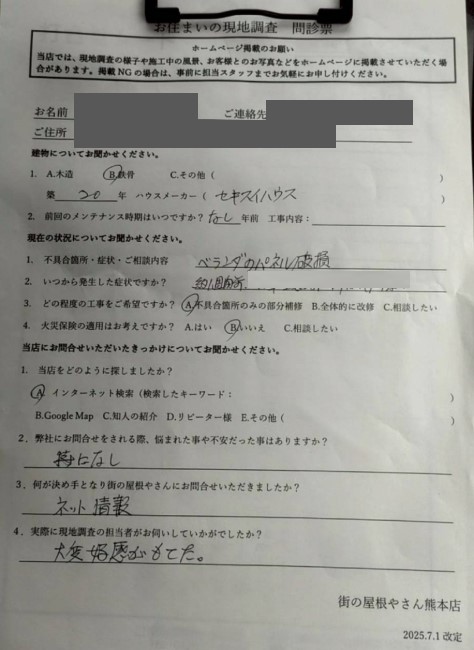 お住まいの現地調査 問診票
ホームページ掲載のお願い
当店では、現地調査の様子や施工中の風景、お客様とのお写真などをホームページに掲載させていただく場
合があります。掲載 NG の場合は、事前に担当スタッフまでお気軽にお申し付けください。
お名前 ご連絡先
ご住所
建物についてお聞かせください。
1. A.木造 B.鉄骨 C.その他 ( )
築 20 年 ハウスメーカー ( セキスイハウス )
2. 前回のメンテナンス時期はいつですか? なし 年前 工事内容:
現在の状況についてお聞かせください。
1. 不具合箇所・症状・ご相談内容 ベランダのパネル破損
2. いつから発生した症状ですか?
3. どの程度の工事をご希望ですか? A.不具合箇所のみの部分補修 B.全体的に改修 C.相談したい
4. 火災保険の適用はお考えですか? A.はい B.いいえ C.相談したい
当店にお問合せいただいたきっかけについてお聞かせください。
1. 当店をどのように探しましたか?
A インターネット検索 (検索したキーワード: )
B.Google Map C.知人の紹介 D.リピーター様 E.その他 ( )
2、弊社にお問合せをされる際、悩まれた事や不安だった事はありますか?
特になし
3、何が決め手となり街の屋根やさんにお問合せいただきましたか?
ネット情報
4、実際に現地調査の担当者がお伺いしていかがでしたか?
大変好感がもてた。
街の屋根やさん熊本店
2025.7.1 改定